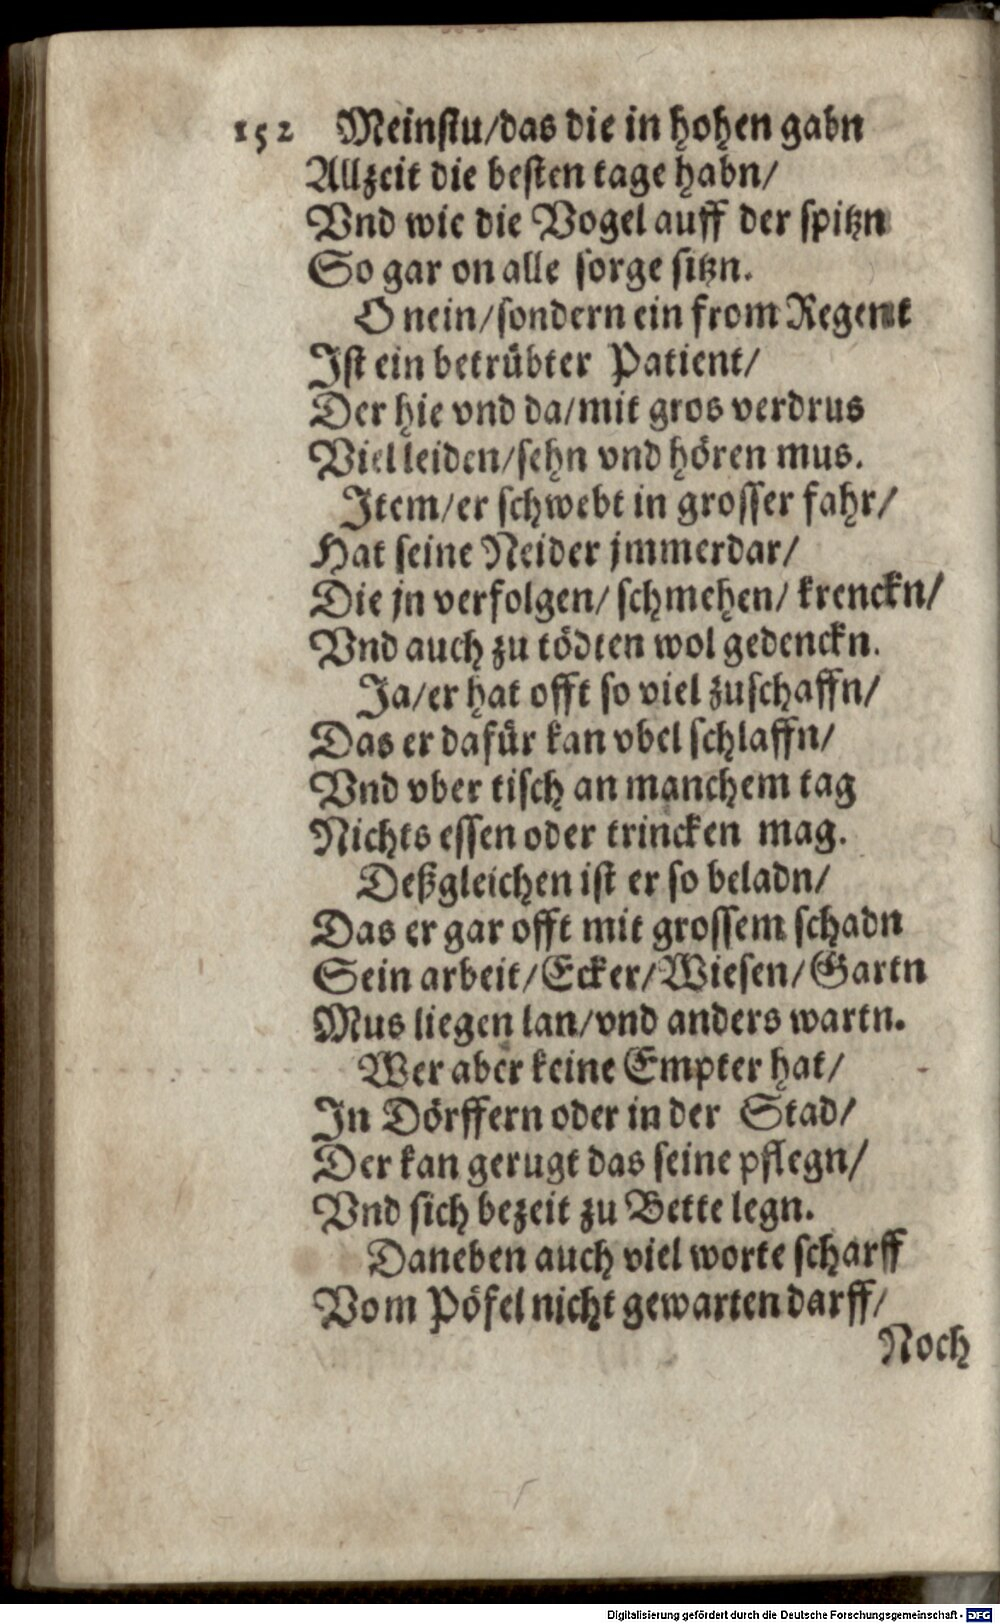 152 Meinstu/das die in hohen gabn
Allzeit die besten tage habn/
Vnd wie die Vogel auff der spitzn
So gar on alle sorge sitzn.
O nein/sondern ein from Regent
Ist ein betrübter Patient/
Der hie vnd da/mit gros verdrus
Viel leiden/sehn vnd hören mus.
Item/er schwebt in grosser fahr/
Hat seine Neider jmmerdar/
Die jn verfolgen/ schmehen/ krenckn/
Vnd auch zu tödten wol gedenckn.
Ja/er hat offt so viel zuschaffn/
Das er dafür kan vbel schlaffn/
Vnd vber tisch an manchem tag
Nichts essen oder trincken mag.
Deßgleichen ist er so beladn/
Das er gar offt mit grossem schadn
Sein arbeit/Ecker/Wiesen/Gartn
Mus liegen lan/vnd anders wartn.
Wer aber keine Empter hat/
In Dörffern oder in der Stad/
Der kan gerugt das seine pflegn/
Vnd sich bezeit zu Bette legn.
Daneben auch viel worte scharff
Vom Pöfel nicht gewarten darff/
Noch
Digitalisierung gefördert durch die Deutsche Forschungsgemeinschaft - DFG